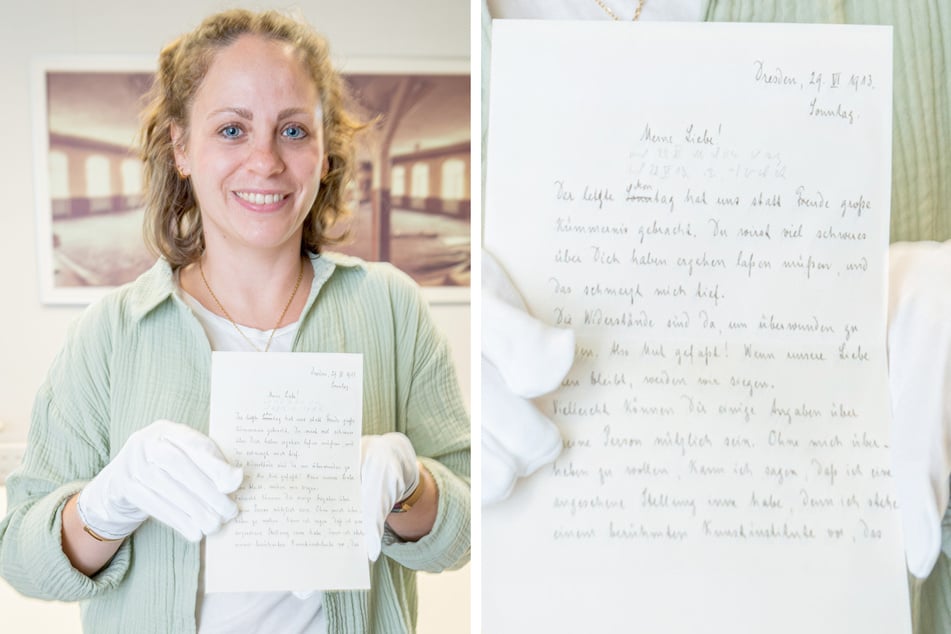 Dresden, 29. VI 1913.
Sonntag.
Meine Liebe!
Der letzte tag hat uns statt Freude große
Kümmernis gebracht. Du wirst viel schweres
über Dich haben ergehen laßen müßen, und
das schmerzt mich tief.
Die Widerstände sind da, um überwunden zu
den. Also Mut gefaßt! Wenn unsere Liebe
bleibt, werden wir siegen.
Vielleicht können Dir einige Angaben über
eine Person nützlich sein. Ohne mich über-
heben zu wollen kann ich sagen, daß ich eine
angesehene Stellung inne habe, denn ich stehe
einem berühmten Kunstinstitute vor, das